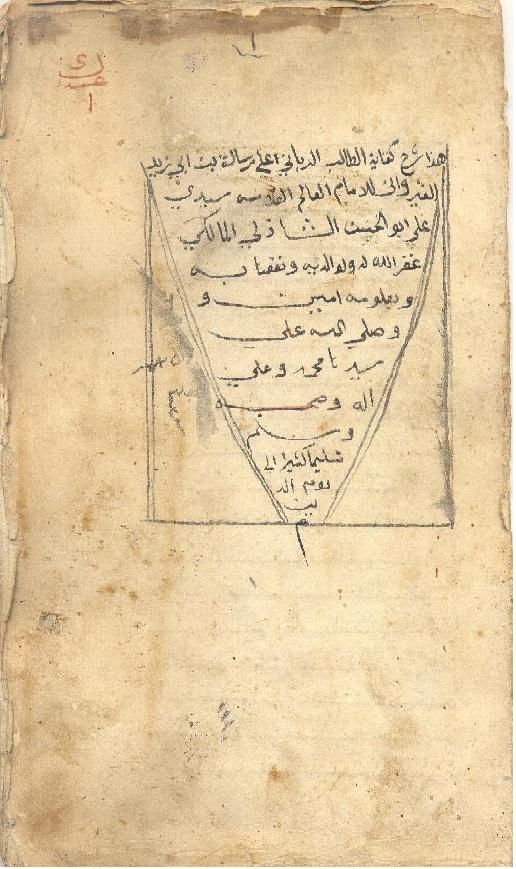 ١
هذا شرح كفاية الطالب الرباني اعلى رسالة بن ابي زيد
القيرواني للامام العالم العلامه سيدي
علي ابو الحسن الشاذلي المالكي
غفر الله له ولوالديه ونفعنا به
وبعلومه امين و
وصلي الله علي
سيدنا محمد وعلي
اله وصحبه
وسلم
تسليما كثيرا الى
يوم الد
ين
م